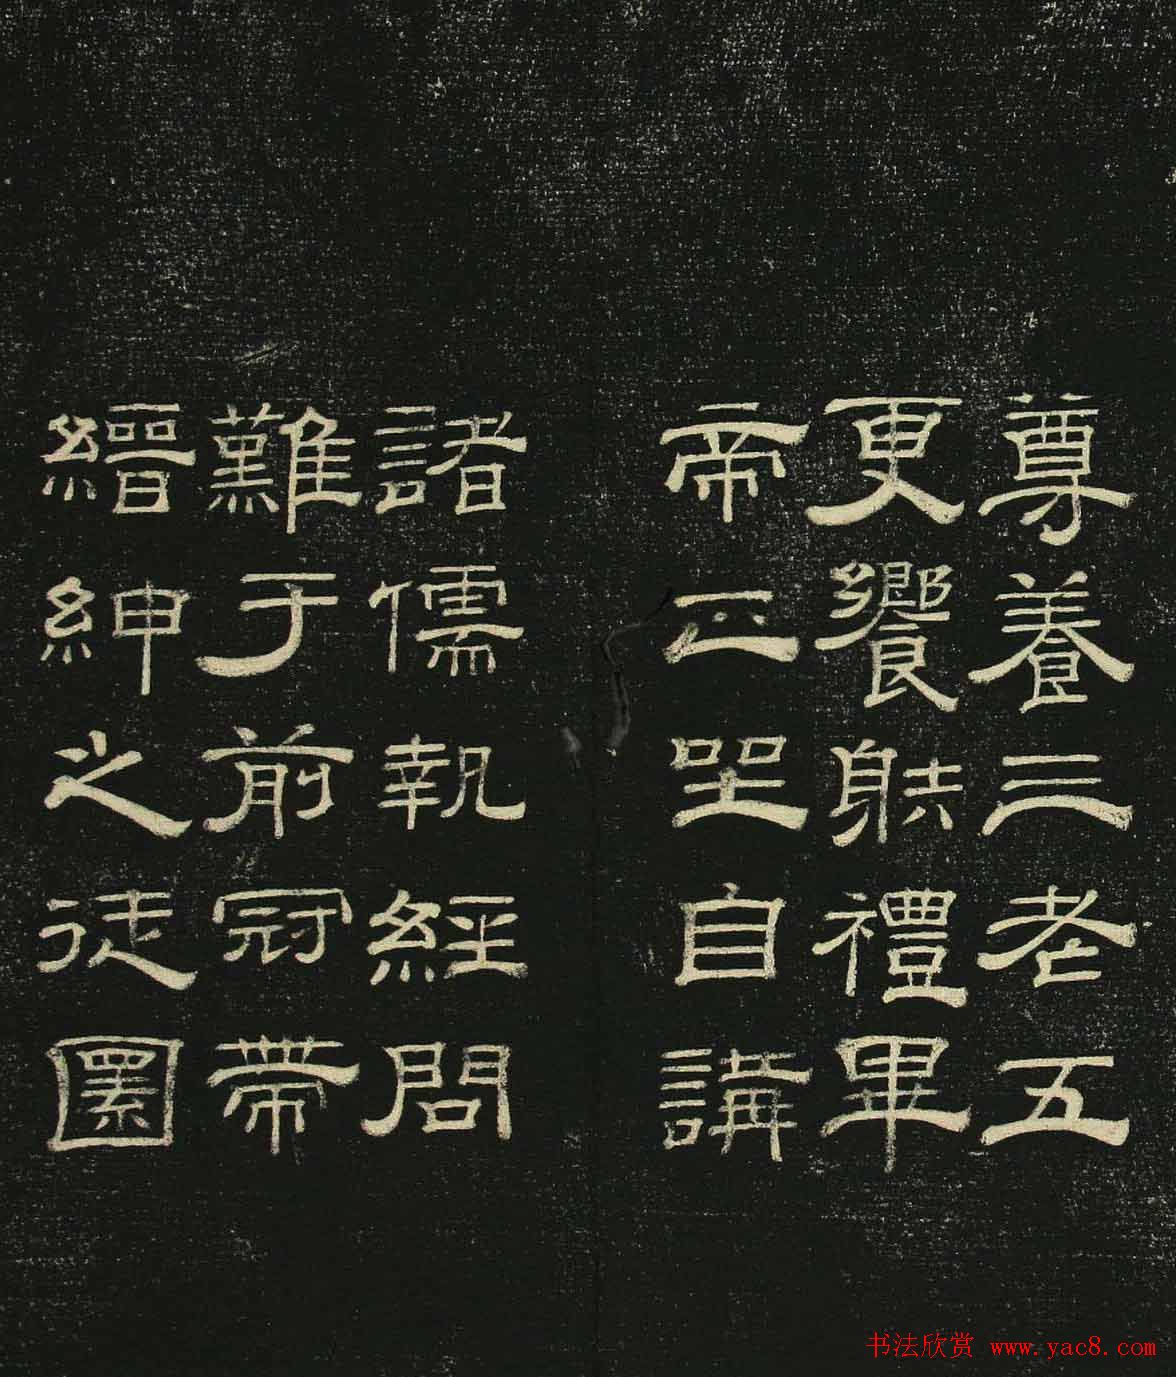 尊養三老五
更饗射禮畢
帝正坐自講
諸儒執經問
難于前冠帶
縉紳之徒圜
书法欣赏 www.yac8.com